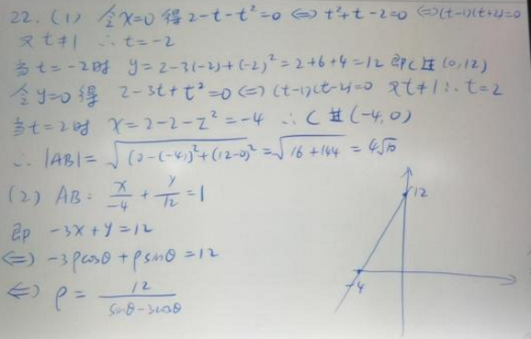 22. (1) 令x=0 得 2-t-t²=0 ⇔ t²+t-2=0 ⇔ (t-1)(t+2)=0
又t≠1 ∴ t=-2
当t=-2时 y=2-3(-2)+(-2)²=2+6+4=12 即C过(0,12)
令y=0 得 2-3t+t²=0 ⇔ (t-1)(t-2)=0 又t≠1 ∴ t=2
当t=2时 x=2-2-2²=-4 ∴ C过(-4,0)
∴ |AB|=√((0-(-4))²+(12-0)²)=√(16+144)=4√10
(2) AB: x/-4 + y/12 = 1
即 -3x+y=12
⇔ -3ρcosθ+ρsinθ=12
⇔ ρ= 12/(sinθ-3cosθ)
12
-4